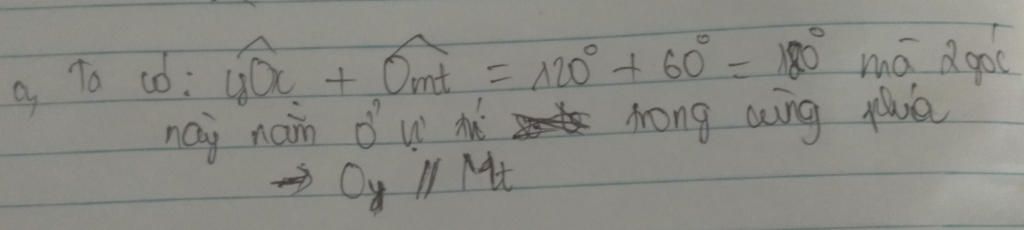 a, Ta có: yOx + Omt = 120° + 60° = 180° mà 2 góc
này nằm ở vị trí trong cùng phía
→ Oy // Mt